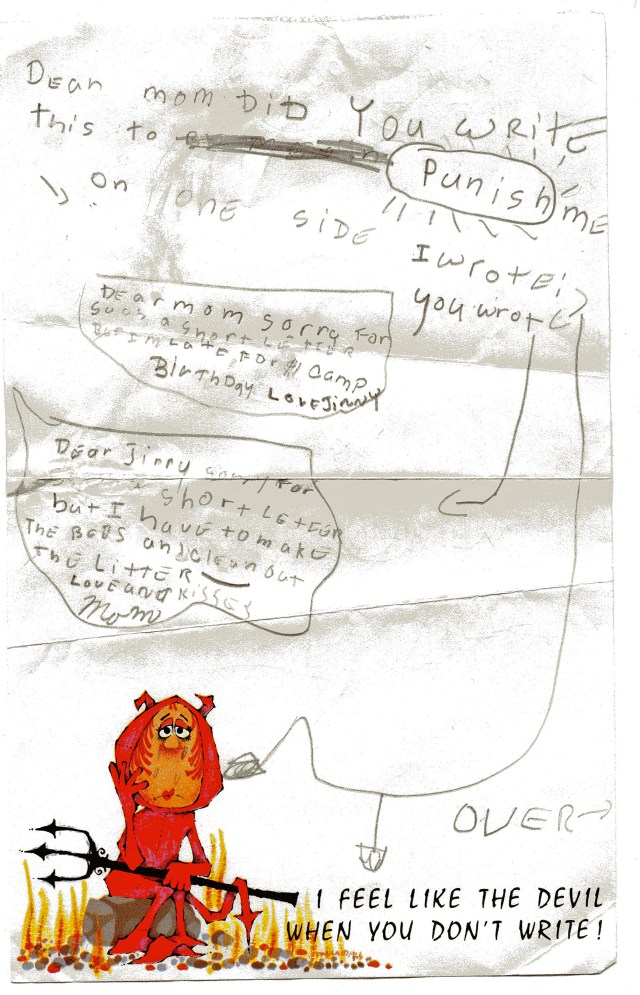 DEar mom DiD You writE
this to
Punish mE
on onE siDE
I wrote;
you wrote
DEar mom sorry For
Such a short LETTER
But I'm LatE For camp
BirthDay LovEJinny
DEar Jinny For
short LETEER
but I havE to makE
ThE BEDS and clean out
thE LiTTER
LOVE and KissES
Mom
OVER
I FEEL LIKE THE DEVIL
WHEN YOU DON'T WRITE!